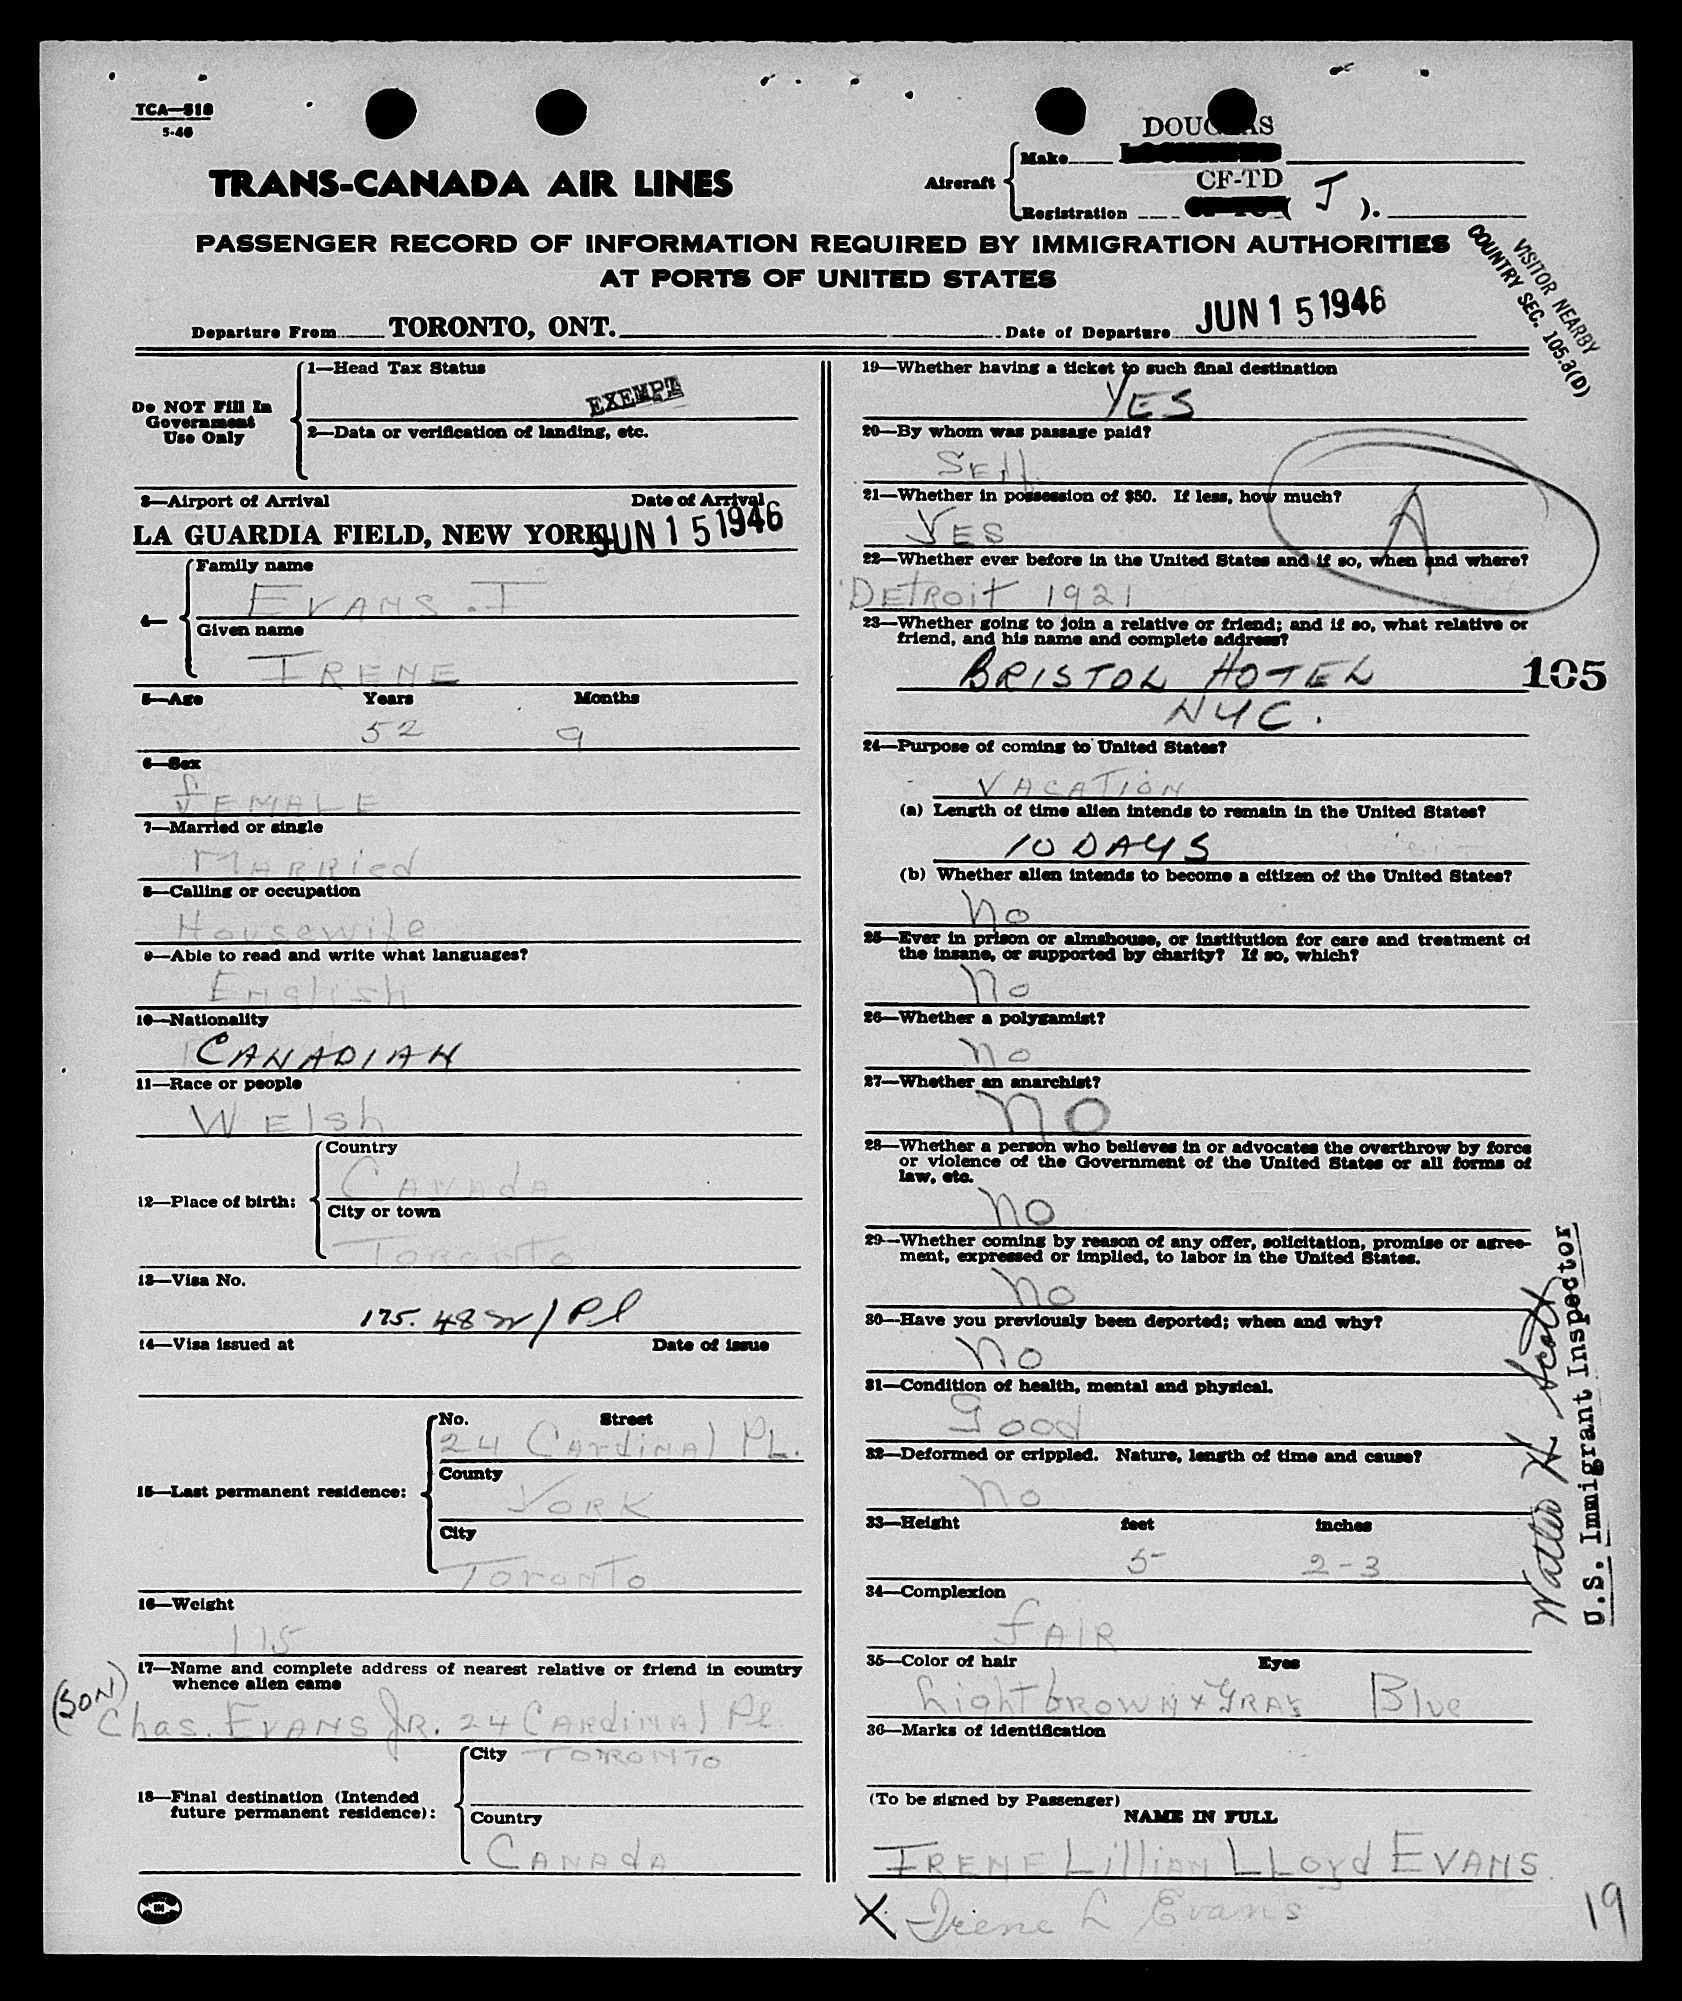 TCA—518
5-46
DOUGLAS
Aircraft
Make
CF-TD
Registration ( J ).
TRANS-CANADA AIR LINES
PASSENGER RECORD OF INFORMATION REQUIRED BY IMMIGRATION AUTHORITIES
AT PORTS OF UNITED STATES
VISITOR NEARBY
COUNTRY SEC. 105.3(D)
Departure From TORONTO, ONT. Date of Departure JUN 15 1946
Do NOT Fill In
Government
Use Only
1—Head Tax Status
EXEMPT
2—Data or verification of landing, etc.
3—Airport of Arrival Date of Arrival
LA GUARDIA FIELD, NEW YORK JUN 15 1946
4—
Family name
EVANS. I
Given name
IRENE
5—Age Years Months
52 9
6—Sex
FEMALE
7—Married or single
MARRied
8—Calling or occupation
Housewife
9—Able to read and write what languages?
English
10—Nationality
CANADIAN
11—Race or people
WElsh
12—Place of birth:
Country
CANAdA
City or town
ToRonTo
13—Visa No.
175.48
14—Visa issued at Date of issue
15—Last permanent residence:
No. Street
24 CArdinAl PL.
County
YORK
City
ToronTo
16—Weight
115
17—Name and complete address of nearest relative or friend in country
whence alien came
(SON)
Chas. EVANS JR. 24 CARdinAl Pl.
TORONTO
18—Final destination (Intended
future permanent residence):
City
Country
CANAdA
19—Whether having a ticket to such final destination
YES
20—By whom was passage paid?
SElf
21—Whether in possession of $50. If less, how much?
YES
A
22—Whether ever before in the United States and if so, when and where?
DETRoit 1921
23—Whether going to join a relative or friend; and if so, what relative or
friend, and his name and complete address?
BRISTOL HOTEL
NYC.
105
24—Purpose of coming to United States?
VACATION
(a) Length of time alien intends to remain in the United States?
10 DAYS
(b) Whether alien intends to become a citizen of the United States?
No
25—Ever in prison or almshouse, or institution for care and treatment of
the insane, or supported by charity? If so, which?
No
26—Whether a polygamist?
No
27—Whether an anarchist?
NO
28—Whether a person who believes in or advocates the overthrow by force
or violence of the Government of the United States or all forms of
law, etc.
NO
29—Whether coming by reason of any offer, solicitation, promise or agree-
ment, expressed or implied, to labor in the United States.
No
30—Have you previously been deported; when and why?
No
31—Condition of health, mental and physical.
Good
32—Deformed or crippled. Nature, length of time and cause?
No
33—Height feet inches
5 2-3
34—Complexion
FAIR
35—Color of hair Eyes
LightbROWN + GRAY Blue
36—Marks of identification
(To be signed by Passenger)
NAME IN FULL
IRENE Lillian LLoyd EVANS
X Irene L Evans
19
Walter H. Scott
U.S. Immigrant Inspector